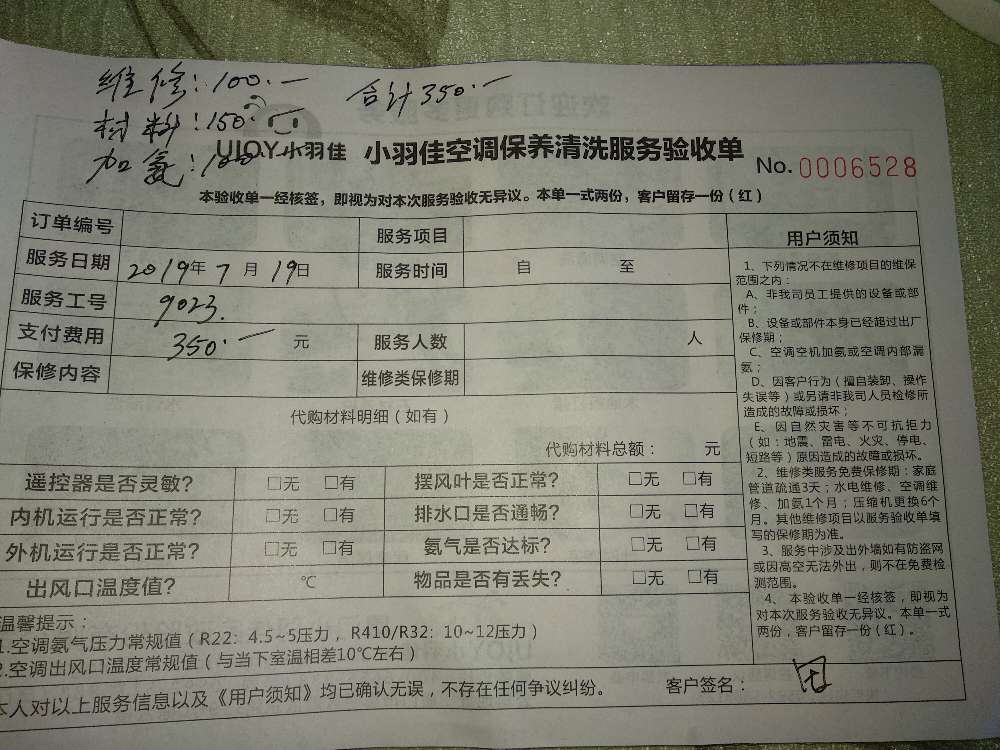 维修：100.一
合计350.一
材料：150.一
加氨：100.
UJOY小羽佳 小羽佳空调保养清洗服务验收单
No. 0006528
本验收单一经核签，即视为对本次服务验收无异议。本单一式两份，客户留存一份（红）
订单编号 服务项目
服务日期 2019年7月19日 服务时间 自 至
服务工号 9023.
支付费用 350.一 元 服务人数 人
保修内容 维修类保修期
代购材料明细（如有）
代购材料总额： 元
遥控器是否灵敏？ □无 □有 摆风叶是否正常？ □无 □有
内机运行是否正常？ □无 □有 排水口是否通畅？ □无 □有
外机运行是否正常？ □无 □有 氨气是否达标？ □无 □有
出风口温度值？ ℃ 物品是否有丢失？ □无 □有
温馨提示：
1.空调氨气压力常规值（R22：4.5~5压力，R410/R32：10~12压力）
2.空调出风口温度常规值（与当下室温相差10℃左右）
本人对以上服务信息以及《用户须知》均已确认无误，不存在任何争议纠纷。 客户签名：
用户须知
1、下列情况不在维修项目的维保
范围之内：
A、非我司员工提供的设备或部
件；
B、设备或部件本身已经超过出厂
保修期；
C、空调空机加氨或空调内部漏
氨；
D、因客户行为（擅自装卸、操作
失误等）或另请非我司人员检修所
造成的故障或损坏；
E、因自然灾害等不可抗拒力
（如：地震、雷电、火灾、停电、
短路等）原因造成的故障或损坏。
2、维修类服务免费保修期：家庭
管道疏通3天；水电维修、空调维
修、加氨1个月；压缩机更换6个
月。其他维修项目以服务验收单填
写的保修期为准。
3、服务中涉及出外墙如有防盗网
或因高空无法外出，则不在免费检
测范围。
4、本验收单一经核签，即视为
对本次服务验收无异议。本单一式
两份，客户留存一份（红）。